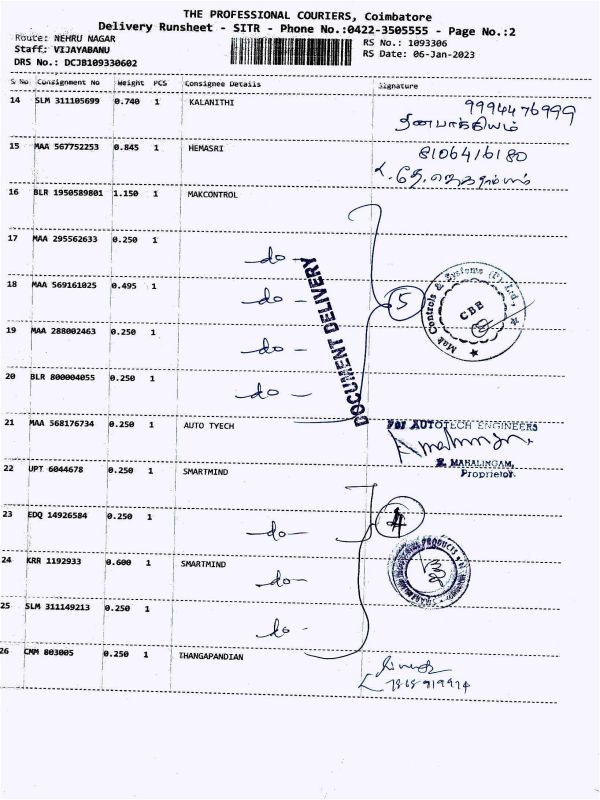 THE PROFESSIONAL COURIERS, Coimbatore
Delivery Runsheet - SITR - Phone No.:0422-3505555 - Page No.:2
Route: NEHRU NAGAR
RS No.: 1093306
Staff: VIJAYABANU
RS Date: 06-Jan-2023
DRS No.: DCJB109330602
S No Consignment No Weight PCS Consignee Details Signature
14 SLM 311105699 0.740 1 KALANITHI 9994476999
15 MAA 567752253 0.845 1 HEMASRI 8106416180
16 BLR 1950589801 1.150 1 MAKCONTROL
17 MAA 295562633 0.250 1 -do-
18 MAA 569161025 0.495 1 -do-
19 MAA 288002463 0.250 1 -do-
20 BLR 800004055 0.250 1 -do-
DOCUMENT DELIVERY
5
Mak Controls & Systems (P) Ltd.,
CBE
21 MAA 568176734 0.250 1 AUTO TYECH
For AUTOTECH ENGINEERS
R. MAHALINGAM,
Proprietor
22 UPT 6044678 0.250 1 SMARTMIND
23 EDQ 14926584 0.250 1 -do-
4
24 KRR 1192933 0.600 1 SMARTMIND -do-
25 SLM 311149213 0.250 1 -do-
26 CMM 803005 0.250 1 THANGAPANDIAN